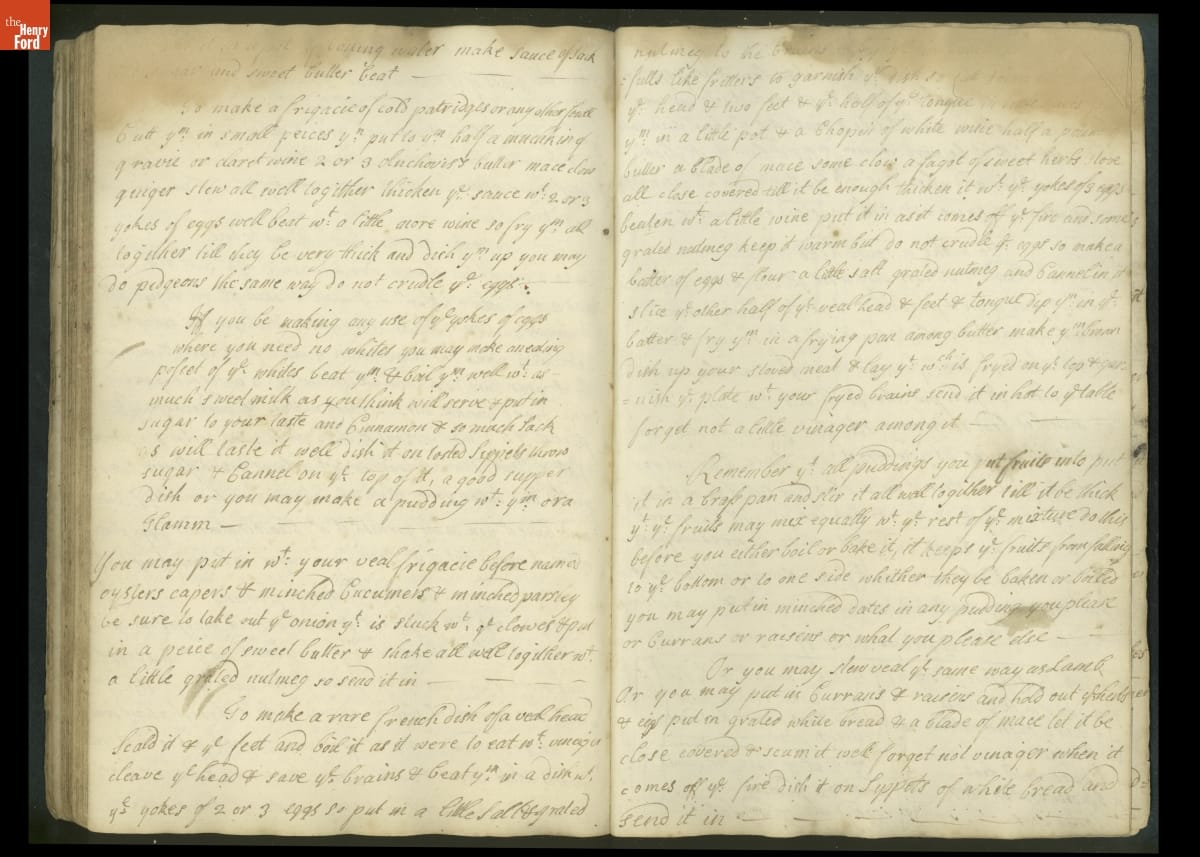 the Henry Ford
boyling water make sauce of sack
and sweet butter beat
To make a frigacie of cold patridges or any other foull
Cutt yᵐ in small peices yⁿ put to yᵐ half a mutchkin of
gravie or claret wine 2 or 3 Anchovies & butter mace clow
ginger stew all well togither thicken yᵉ sauce wᵗ: 2 or 3
yokes of eggs well beat wᵗ a little more wine so fry yᵐ all
together till they be very thick and dish yᵐ up you may
do pidgeons the same way do not crudle yᵉ eggs
If you be making any use of yᵉ yokes of eggs
where you need no whites you may make an eating
posset of yᵉ whites beat yᵐ & boil yᵐ well wᵗ as
much sweet milk as you think will serve & put in
sugar to your taste and Cinnamon & so much Sack
as will taste it well dish it on tosted Sippets throw
sugar & Cannel on yᵉ top of it, a good supper
dish or you may make a pudding wᵗ: yᵐ or a
Flamm
You may put in wᵗ: your veal frigacie before named
oysters capers & minched Cucumers & minched parsley
be sure to take out yᵉ onion yᵗ is stuck wᵗ: yᵉ clowes & put
in a peice of sweet butter & shake all well togither wᵗ.
a little grated nutmeg so send it in
To make a rare french dish of a veal head
Scald it & yᵉ feet and boil it as it were to eat wᵗ: vinegir
cleave yᵉ head & save yᵉ brains & beat yᵐ in a dish wᵗ.
yᵉ yokes of 2 or 3 eggs so put in a little Salt & grated
nutmeg to the brains
=fulls like fritters to garnish yᵉ dish so
yᵉ head & two feet & yᵉ half of yᵉ tongue
yᵐ in a little pot & a Chopin of white wine half a poun
butter a blade of mace some clow a fagot of sweet herbs stove
all close covered till it be enough thicken it wᵗ: yᵉ yokes of 3 eggs
beaten wᵗ. a little wine put it in as it comes off yᵉ fire and some
grated nutmeg keep it warm but do not crudle yᵉ eggs so make a
batter of eggs & flour a little salt grated nutmeg and Cannel in it
slice yᵉ other half of yᵉ veal head & feet & tongue dip yᵐ in yᵉ
batter & fry yᵐ in a frying pan among butter make yᵐ brown
dish up your stoved meat & lay yᵗ wᶜʰ is fryed on yᵉ top & gar
=nish yᵉ plate wᵗ. your fryed brains send it in hot to yᵉ table
forget not a little vinager among it
Remember yᵗ all puddings you put fruits into put
it in a brass pan and stir it all well togither till it be thick
yᵗ yᵉ fruits may mix equally wᵗ yᵉ rest of yᵉ mixture do this
before you either boil or bake it, it keeps yᵉ fruits from falling
to yᵉ bottom or to one side whither they be baken or boiled
you may put in minched dates in any pudding you please
or Currans or raisins or what you please else
Or you may stew veal yᵉ same way as Lamb
Or you may put in Currans & raisins and hold out yᵉ herbs
& eggs put in grated white bread & a blade of mace let it be
close covered & scum it well forget not vinager when it
comes off yᵉ fire dish it on Syppets of white bread and
send it in